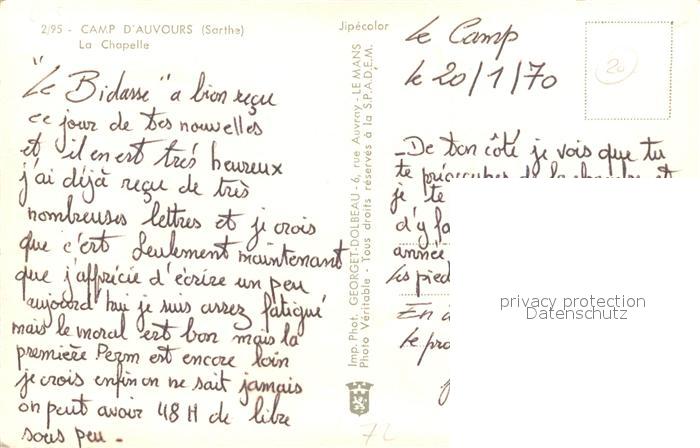 2/95 - CAMP D'AUVOURS (Sarthe)
La Chapelle
"Le Bidasse" a bien reçu
ce jour de tes nouvelles
et il en est très heureux
j'ai déjà reçu de très
nombreuses lettres et je crois
que c'est seulement maintenant
que j'apprécie d'écrire un peu
aujourd'hui je suis assez fatigué
mais le moral est bon mais la
première Perm est encore loin
je crois enfin on ne sait jamais
on peut avoir 48 H de libre
sous peu -
Jipécolor
Imp. Phot. GEORGET-DOLBEAU - 6, rue Auvray - LE MANS
Photo Véritable - Tous droits réservés à la S.P.A.D.E.M.
Le Camp
le 20/1/70
20
-De ton côté je vois que tu
te préoccupes de la chambre et
je te
d'y fa
année
les pied
En a
le pro
72
privacy protection
Datenschutz